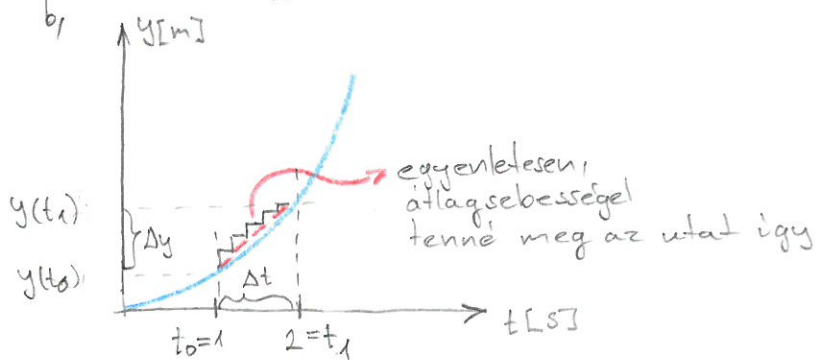 b,
y[m]
egyenletesen,
átlagsebességel
tenné meg az utat így
y(t₁)
Δy
y(t₀)
Δt
t[s]
t₀=1
2=t₁